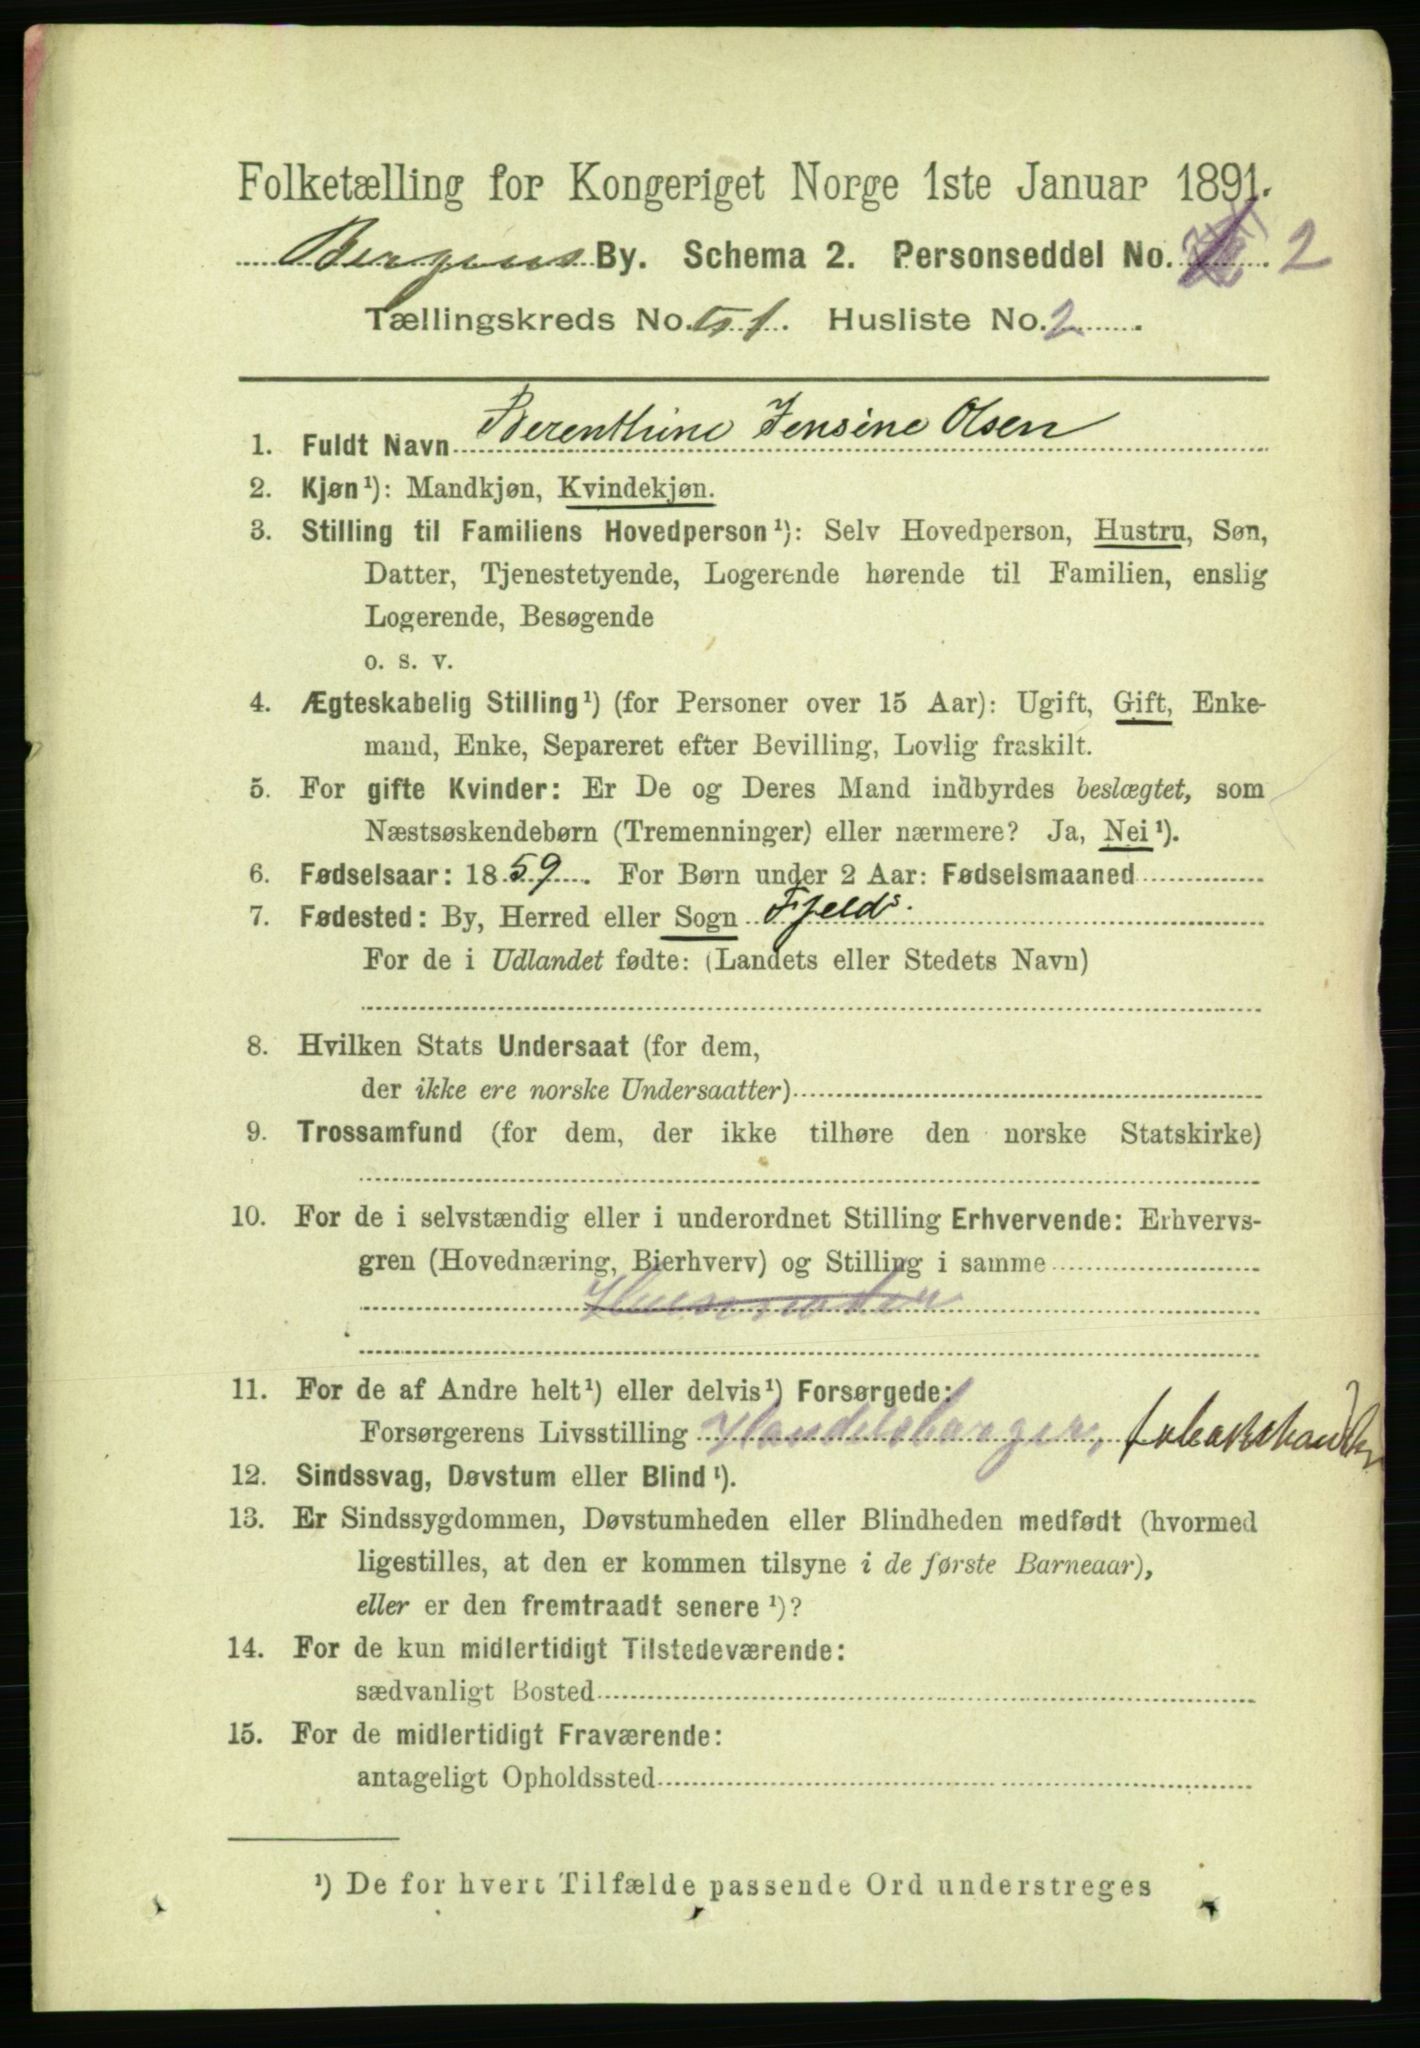 Folketælling for Kongeriget Norge 1ste Januar 1891.
Bergens By. Schema 2. Personseddel No. 2
Tællingskreds No. 51. Husliste No. 2
1. Fuldt Navn Berenthine Jensine Olsen
2. Kjøn¹): Mandkjøn, Kvindekjøn.
3. Stilling til Familiens Hovedperson¹): Selv Hovedperson, Hustru, Søn,
Datter, Tjenestetyende, Logerende hørende til Familien, enslig
Logerende, Besøgende
o. s. v.
4. Ægteskabelig Stilling¹) (for Personer over 15 Aar): Ugift, Gift, Enke-
mand, Enke, Separeret efter Bevilling, Lovlig fraskilt.
5. For gifte Kvinder: Er De og Deres Mand indbyrdes beslægtet, som
Næstsøskendebørn (Tremenninger) eller nærmere? Ja, Nei¹).
6. Fødselsaar: 1859. For Børn under 2 Aar: Fødselsmaaned
7. Fødested: By, Herred eller Sogn Fjelds.
For de i Udlandet fødte: (Landets eller Stedets Navn)
8. Hvilken Stats Undersaat (for dem,
der ikke ere norske Undersaatter)
9. Trossamfund (for dem, der ikke tilhøre den norske Statskirke)
10. For de i selvstændig eller i underordnet Stilling Erhvervende: Erhvervs-
gren (Hovednæring, Bierhverv) og Stilling i samme
Husmoder
11. For de af Andre helt¹) eller delvis¹) Forsørgede:
Forsørgerens Livsstilling Handelsborger,
12. Sindssvag, Døvstum eller Blind¹).
13. Er Sindssygdommen, Døvstumheden eller Blindheden medfødt (hvormed
ligestilles, at den er kommen tilsyne i de første Barneaar),
eller er den fremtraadt senere¹)?
14. For de kun midlertidigt Tilstedeværende:
sædvanligt Bosted
15. For de midlertidigt Fraværende:
antageligt Opholdssted
¹) De for hvert Tilfælde passende Ord understreges